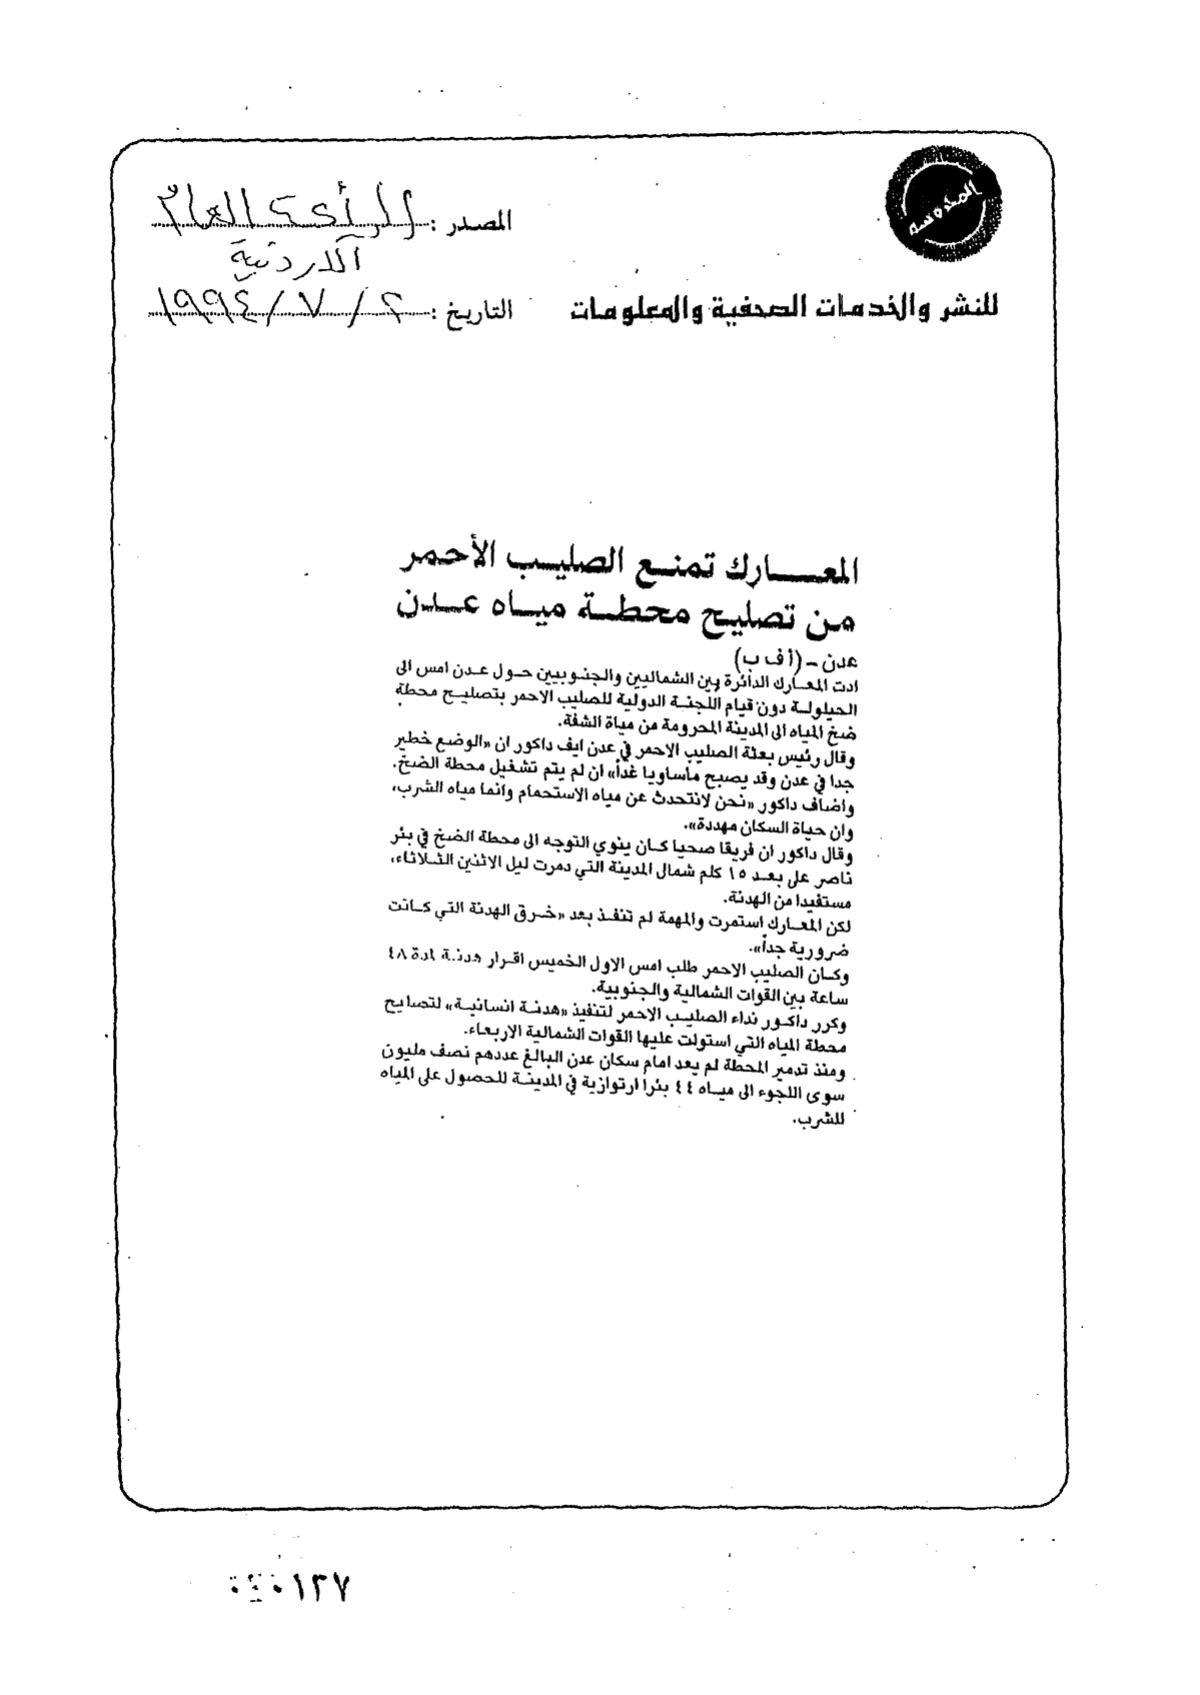 المدوسه
المصدر : الرأي العام
الاردنية
للنشر والخدمات الصحفية والمعلومات
التاريخ : ٢ / ٧ / ١٩٩٤
المعـــارك تمنـع الصليـب الأحـمر
مـن تصليح محطـة ميـاه عـدن
عدن - (أ ف ب)
ادت المعـارك الدائرة بين الشماليين والجنوبيين حـول عـدن امس الى
الحيلولـة دون قيام اللجنـة الدولية للصليب الاحمر بتصليـح محطة
ضخ المياه الى المدينة المحرومة من مياة الشفة.
وقال رئيس بعثة الصليب الاحمر في عدن ايف داكور ان «الوضع خطير
جدا في عدن وقد يصبح مأساويا غداً» ان لم يتم تشغيل محطة الضخ.
واضاف داكور «نحن لانتحدث عن مياه الاستحمام وانما مياه الشرب،
وان حياة السكان مهددة».
وقال داكور ان فريقا صحيا كـان ينوي التوجه الى محطة الضخ في بئر
ناصر على بعـد ١٥ كلم شمال المدينة التي دمرت ليل الاثنين الثـلاثاء،
مستفيدا من الهدنة.
لكن المعـارك استمرت والمهمة لم تنفـذ بعد «خـرق الهدنة التي كـانت
ضرورية جداً».
وكـان الصليب الاحمر طلب امس الاول الخميس اقـرار هدنـة لمدة ٤٨
ساعة بين القوات الشمالية والجنوبية.
وكرر داكـور نداء الصليـب الاحمر لتنفيذ «هدنـة انسانيـة» لتصليح
محطة المياه التي استولت عليها القوات الشمالية الاربعاء.
ومنذ تدمير المحطة لم يعد امام سكان عدن البالغ عددهم نصف مليون
سوى اللجوء الى ميـاه ٤٤ بئرا ارتوازية في المدينـة للحصول على المياه
للشرب.
١٣٧